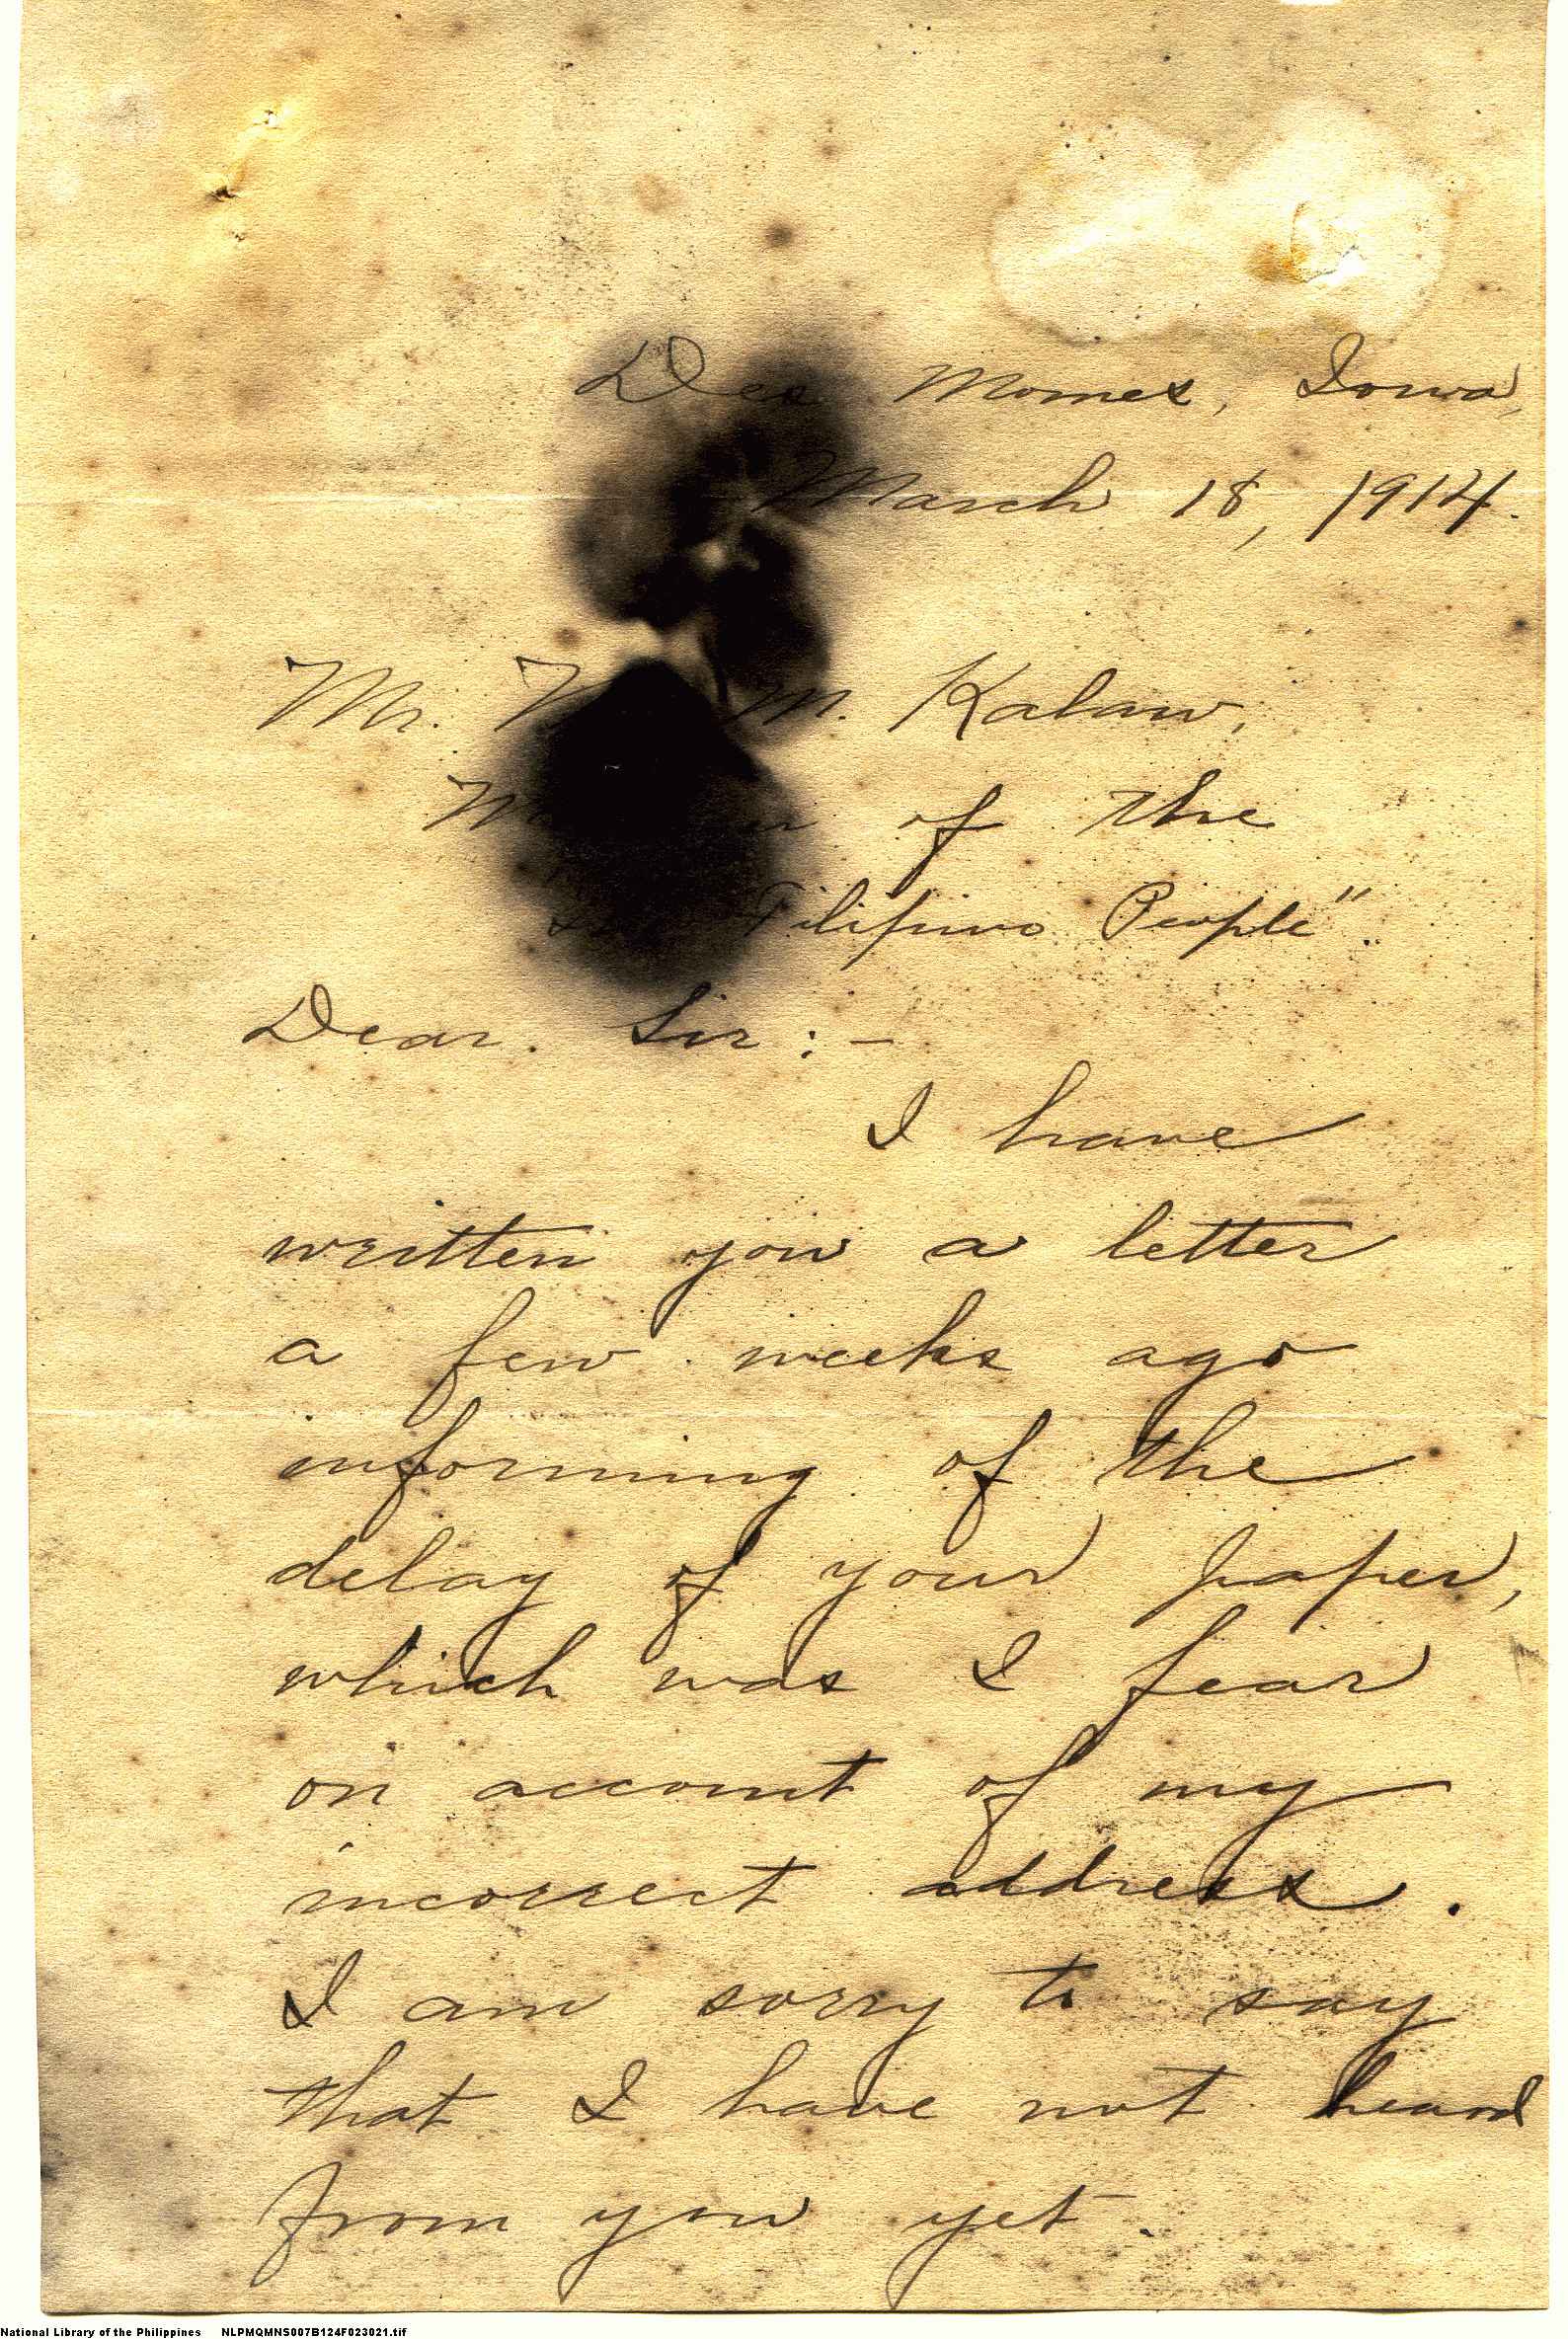 Des Moines, Iowa,
March 18, 1914.
Mr. M. Kalaw,
of the
Filipino People".
Dear Sir:-
I have
written you a letter
a few weeks ago
informing of the
delay of your paper,
which was I fear
on account of my
incorrect address.
I am sorry to say
that I have not heard
from you yet.
National Library of the Philippines NLPMQMNS007B124F023021.tif